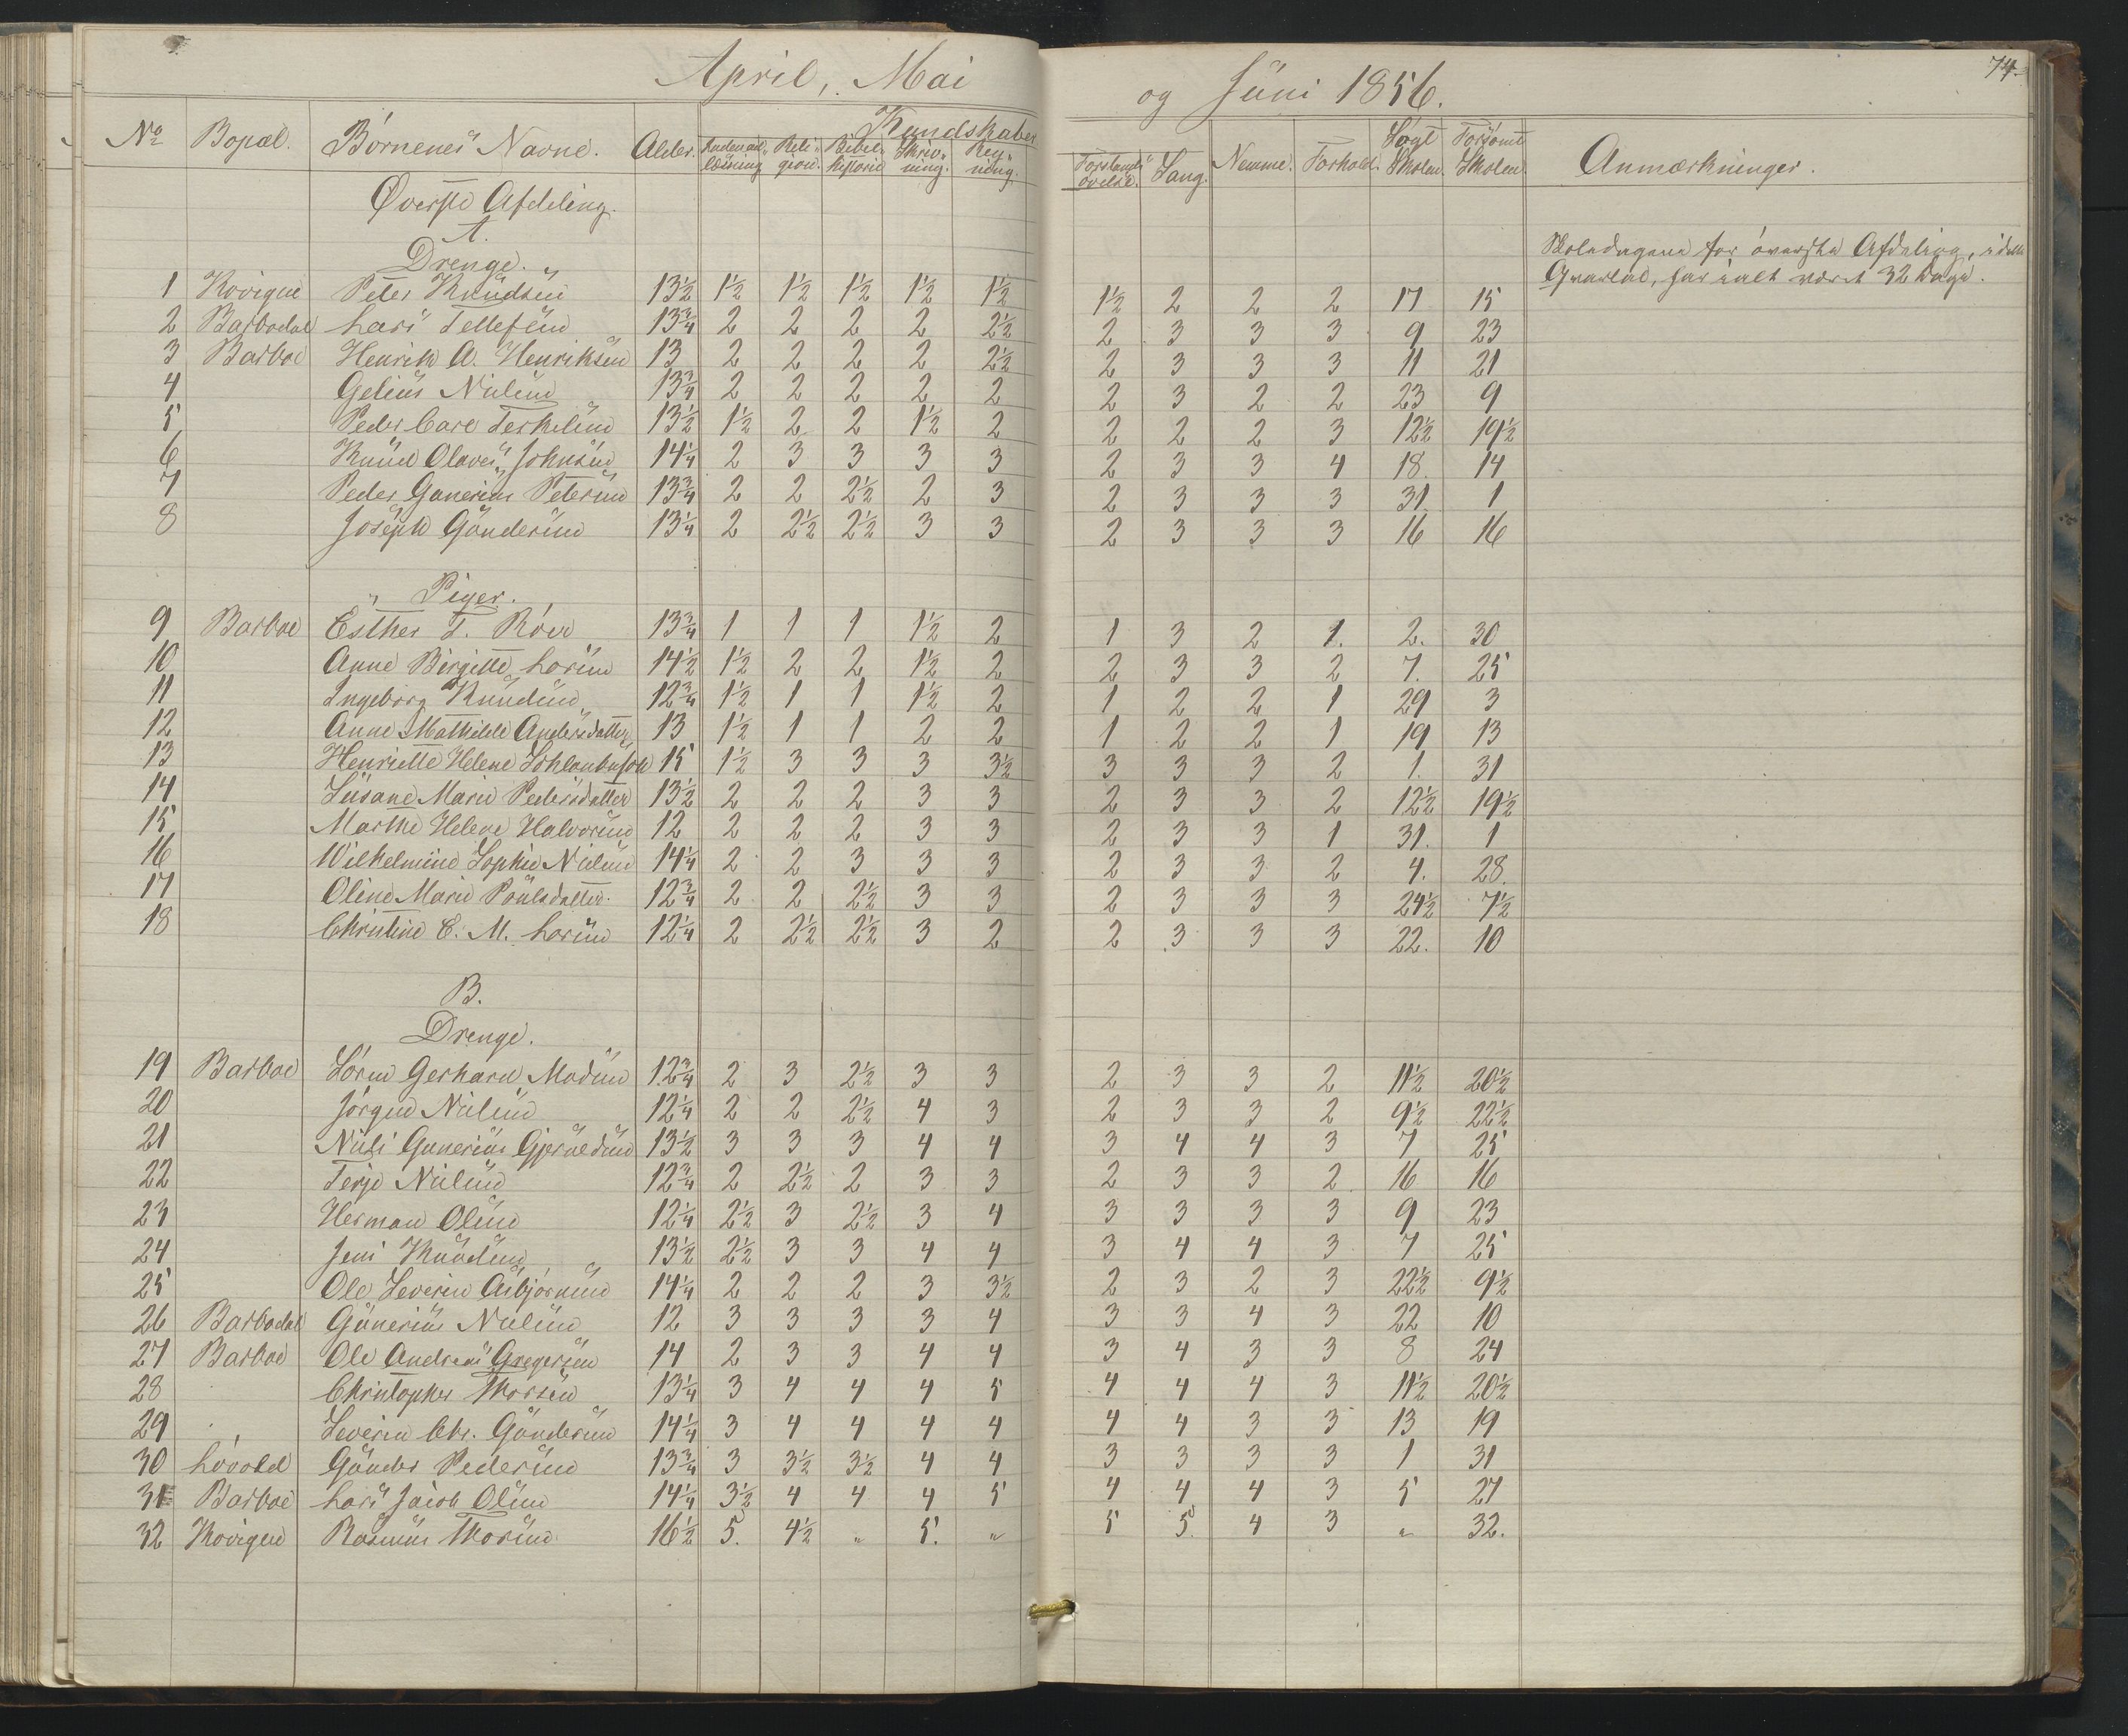 April, Mai og Juni 1856. 74.
No Bopæl. Børnenes Navne. Alder. Kundskaber
Religion. Bibelhistorie Skrivning. Regning. Forstandsøvelse. Sang. Nemme. Forhold. Søgt Skolen. Forsømt Skolen. Anmærkninger.
Øverste Afdeling.
A.
Drenge.
Skoledagene for øverste Afdeling, i dette
Qvartal, har ialt været 32 Dage.
1 Kovigen Peter Knudsen 13½ 1½ 1½ 1½ 1½ 1½ 1½ 2 2 2 17 15
2 Barbodal Lars Tellefsen 13¾ 2 2 2 2 2½ 2 3 3 3 9 23
3 Barboe Henrik A. Henriksen 13 2 2 2 2 2½ 2 3 3 3 11 21
4 Gelius Nielsen 13¾ 2 2 2 2 2 2 3 2 2 23 9
5 Peder Carl Terkelsen 13½ 1½ 2 2 1½ 2 2 2 2 3 12½ 19½
6 Knud Olaves Johnsen 14¼ 2 3 3 3 3 2 3 3 4 18 14
7 Peder Gunerius Petersen 13¾ 2 2 2½ 2 3 2 3 3 3 31 1
8 Joseph Gundersen 13¼ 2 2½ 2½ 3 3 2 3 3 3 16 16
Piger.
9 Barboe Esther T. 13¾ 1 1 1 1½ 2 1 3 2 1. 2. 30
10 Anne Birgitte Larsen 14½ 1½ 2 2 1½ 2 2 3 3 2 7. 25
11 Ingeborg Knudsen 12¾ 1½ 1 1 1½ 2 1 2 2 1 29 3
12 Anne Mathilde Andersdatter 13 1½ 1 1 2 2 1 2 2 1 19 13
13 Henriette Helene 15 1½ 3 3 3 3½ 3 3 3 2 1. 31
14 Susane Marie Pedersdatter 13½ 2 2 2 3 3 2 3 3 2 12½ 19½
15 Marthe Helene Halvorsen 12 2 2 2 3 3 2 3 3 1 31. 1
16 Wilhelmine Sophie Nielsen 14¼ 2 2 3 3 3 2 3 3 2 4. 28.
17 Oline Marie Poulsdatter. 12¾ 2 2 2½ 3 3 2 3 3 3 24½ 7½
18 Christine E. M. Larsen 12¼ 2 2½ 2½ 3 2 2 3 3 3 22. 10
B.
Drenge.
19 Barboe Søren Gerhard Madsen 12¾ 2 3 2½ 3 3 2 3 3 2 11½ 20½
20 Jørgen Nielsen 12¼ 2 2 2½ 4 3 2 3 3 2 9½ 22½
21 Niels Gunerius Gjeruldsen 13½ 3 3 3 4 4 3 4 4 3 7 25
22 Terje Nielsen 12¾ 2 2½ 2 3 3 2 3 3 2 16 16
23 Herman Olsen 12¼ 2½ 3 2½ 3 4 3 3 3 3 9 23
24 Jens Knudsen 13½ 2½ 3 3 4 4 3 4 4 3 7 25
25 Ole Severin Asbjørnsen 14¼ 2 2 2 3 3½ 2 3 2 3 22½ 9½
26 Barbodal Gunerius Nielsen 12 3 3 3 3 4 3 3 4 3 22 10
27 Barboe Ole Andreas Gregersen 14 2 3 3 4 4 3 4 3 3 8 24
28 Christopher Thorsen 13¼ 3 4 4 4 5 4 4 4 3 11½ 20½
29 Severin Chr. Gundersen 14¼ 3 4 4 4 4 4 4 3 3 13 19
30 Løvold Gunder Pedersen 13¾ 3 3½ 3½ 4 4 3 3 3 3 1 31
31 Barboe Lars Jacob Olsen 14¼ 3½ 4 4 4 5 4 4 4 3 5 27
32 Kovigen Rasmus Thorsen 16½ 5. 4½ „ 5. „ 5 5 4 3 „ 32.